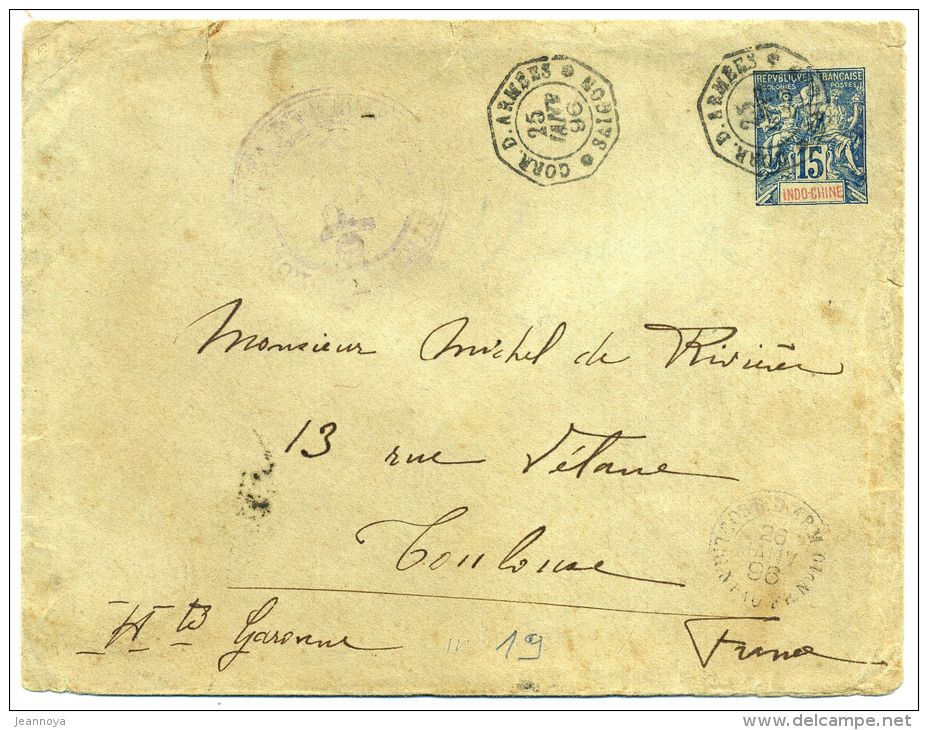 CORR. D. ARMÉES * SAIGON *
25
JANV
96
CORR. D. ARMÉES *
25
RÉPUBLIQUE FRANÇAISE
COLONIES POSTES
15
INDO-CHINE
Monsieur Michel de Rivière
13 rue Vélane
Toulouse
Hte Garonne
19
France
26
JANV
96
jeannoya
www.delcampe.net